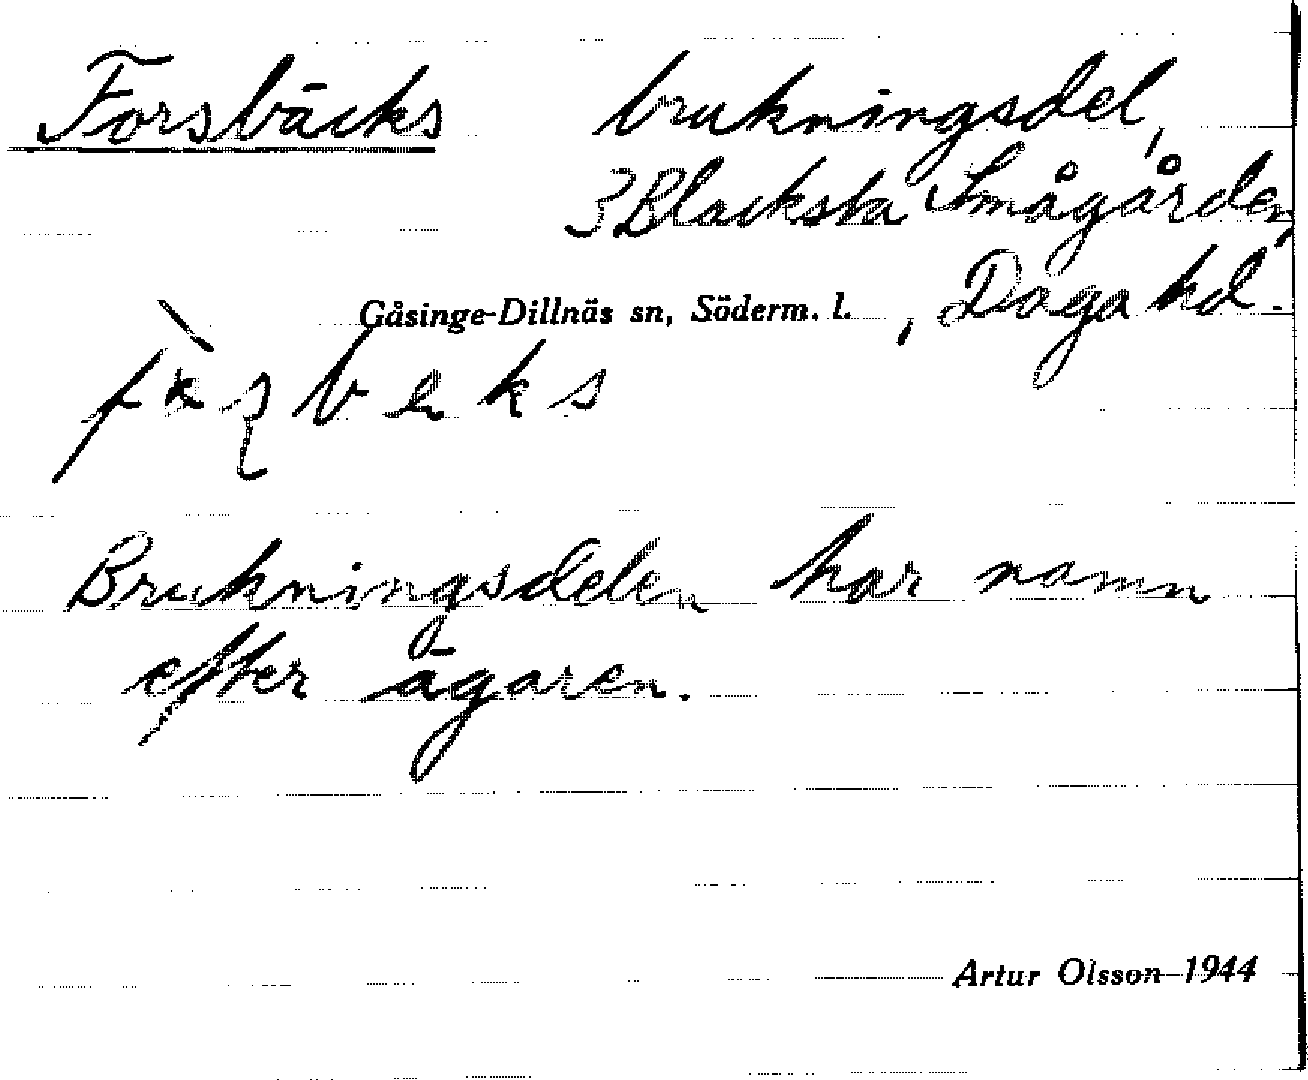 Forsbäcks brukningsdel,
3 Blacksta Smågården,
Gåsinge-Dillnäs sn, Söderm. l. , Daga hd.
Brukningsdelen har namn
efter ägaren.
Artur Olsson 1944